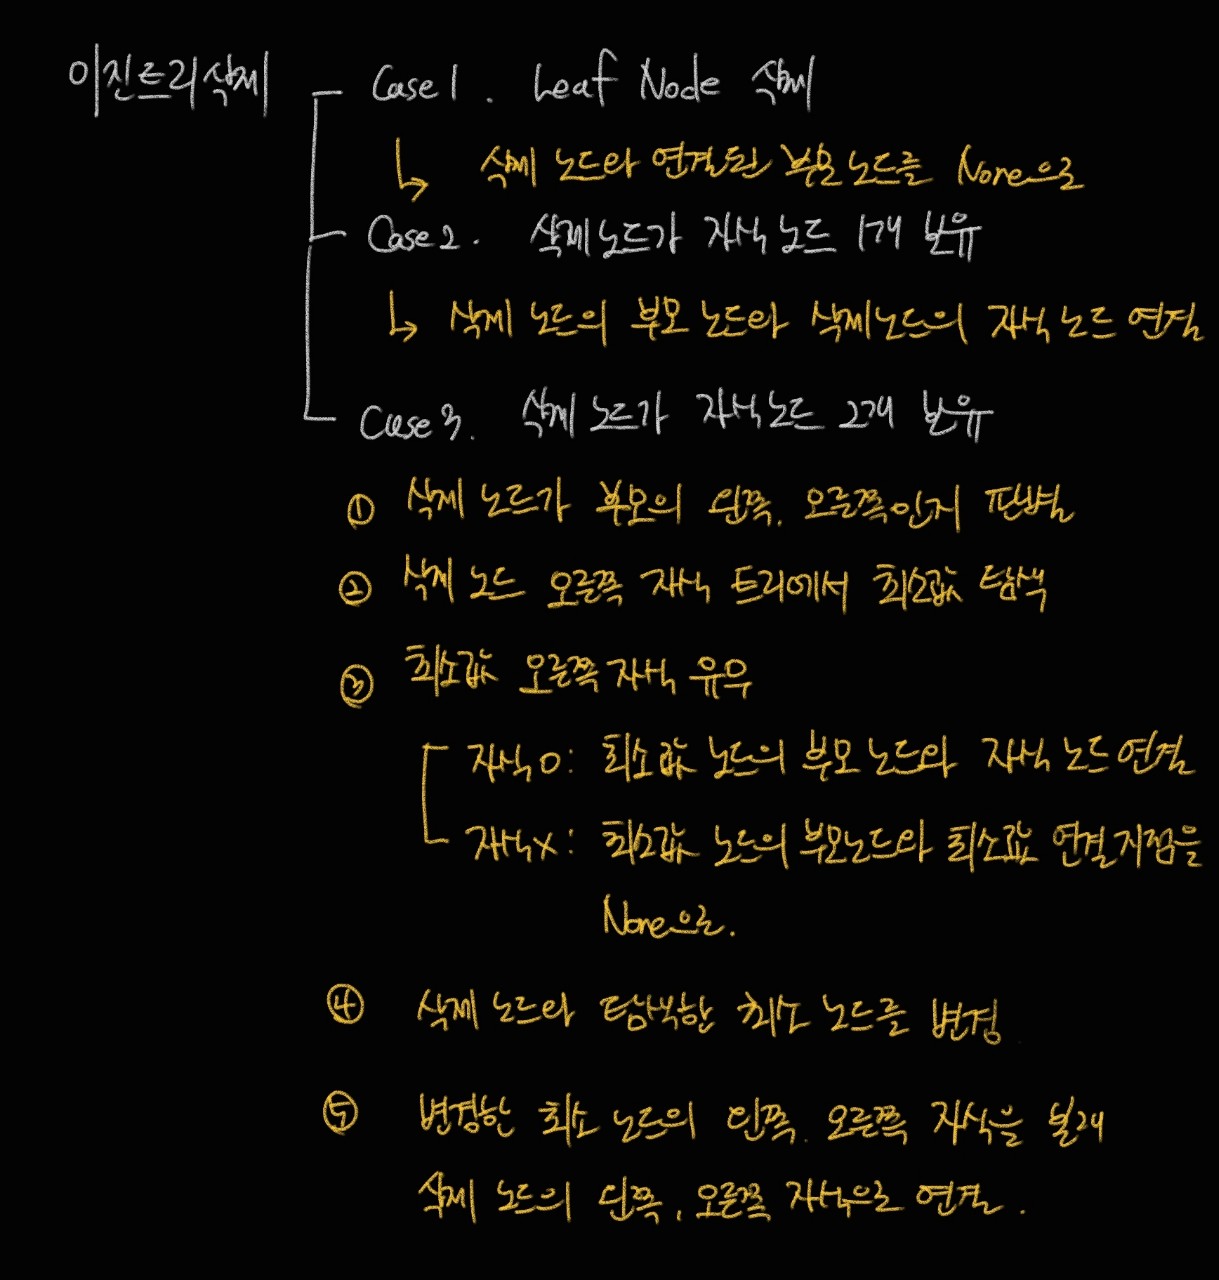 이진트리삭제
Case 1. Leaf Node 삭제
↳ 삭제 노드와 연결된 부모노드를 None으로
Case 2. 삭제노드가 자식노드 1개 보유
↳ 삭제 노드의 부모 노드와 삭제노드의 자식 노드 연결
Case 3. 삭제 노드가 자식노드 2개 보유
① 삭제 노드가 부모의 왼쪽, 오른쪽인지 판별
② 삭제 노드 오른쪽 자식 트리에서 최소값 탐색
③ 최소값 오른쪽 자식 유무
자식 O: 최소값 노드의 부모 노드와 자식 노드 연결
자식 X: 최소값 노드의 부모노드와 최소값 연결지점을
None으로.
④ 삭제 노드와 탐색한 최소 노드를 변경
⑤ 변경한 최소 노드의 왼쪽, 오른쪽 자식을 본래
삭제 노드의 왼쪽, 오른쪽 자식으로 연결.